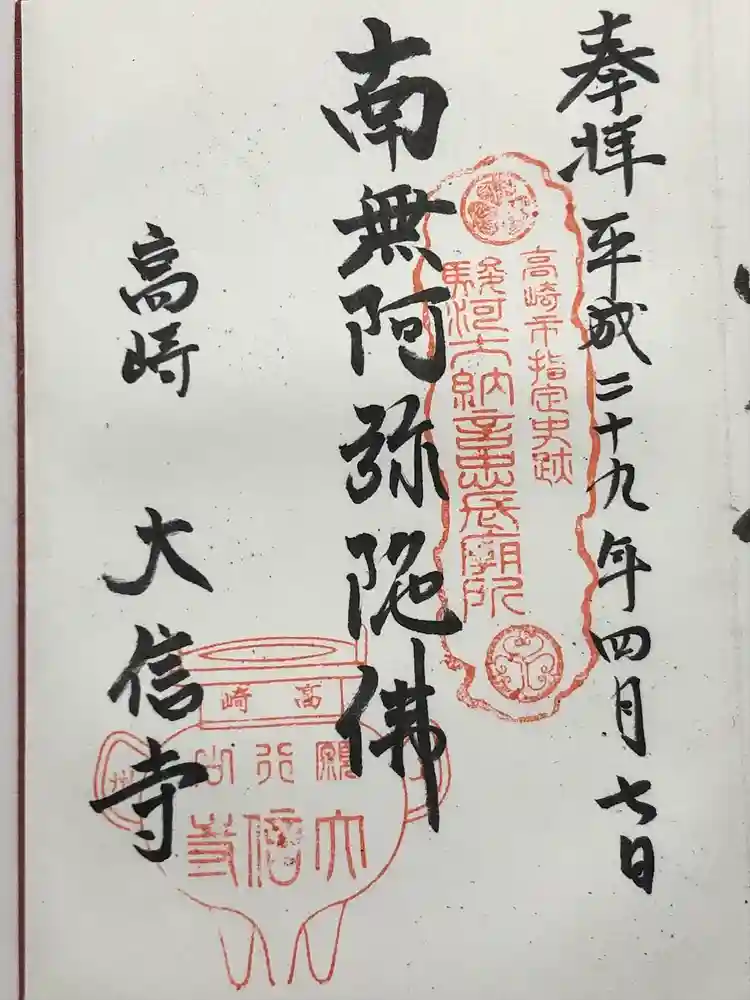 奉拝 平成二十九年四月七日
高崎市指定史跡
駿河大納言忠長廟所
南無阿弥陀佛
高崎 大信寺
高崎
願行山
大信寺
州